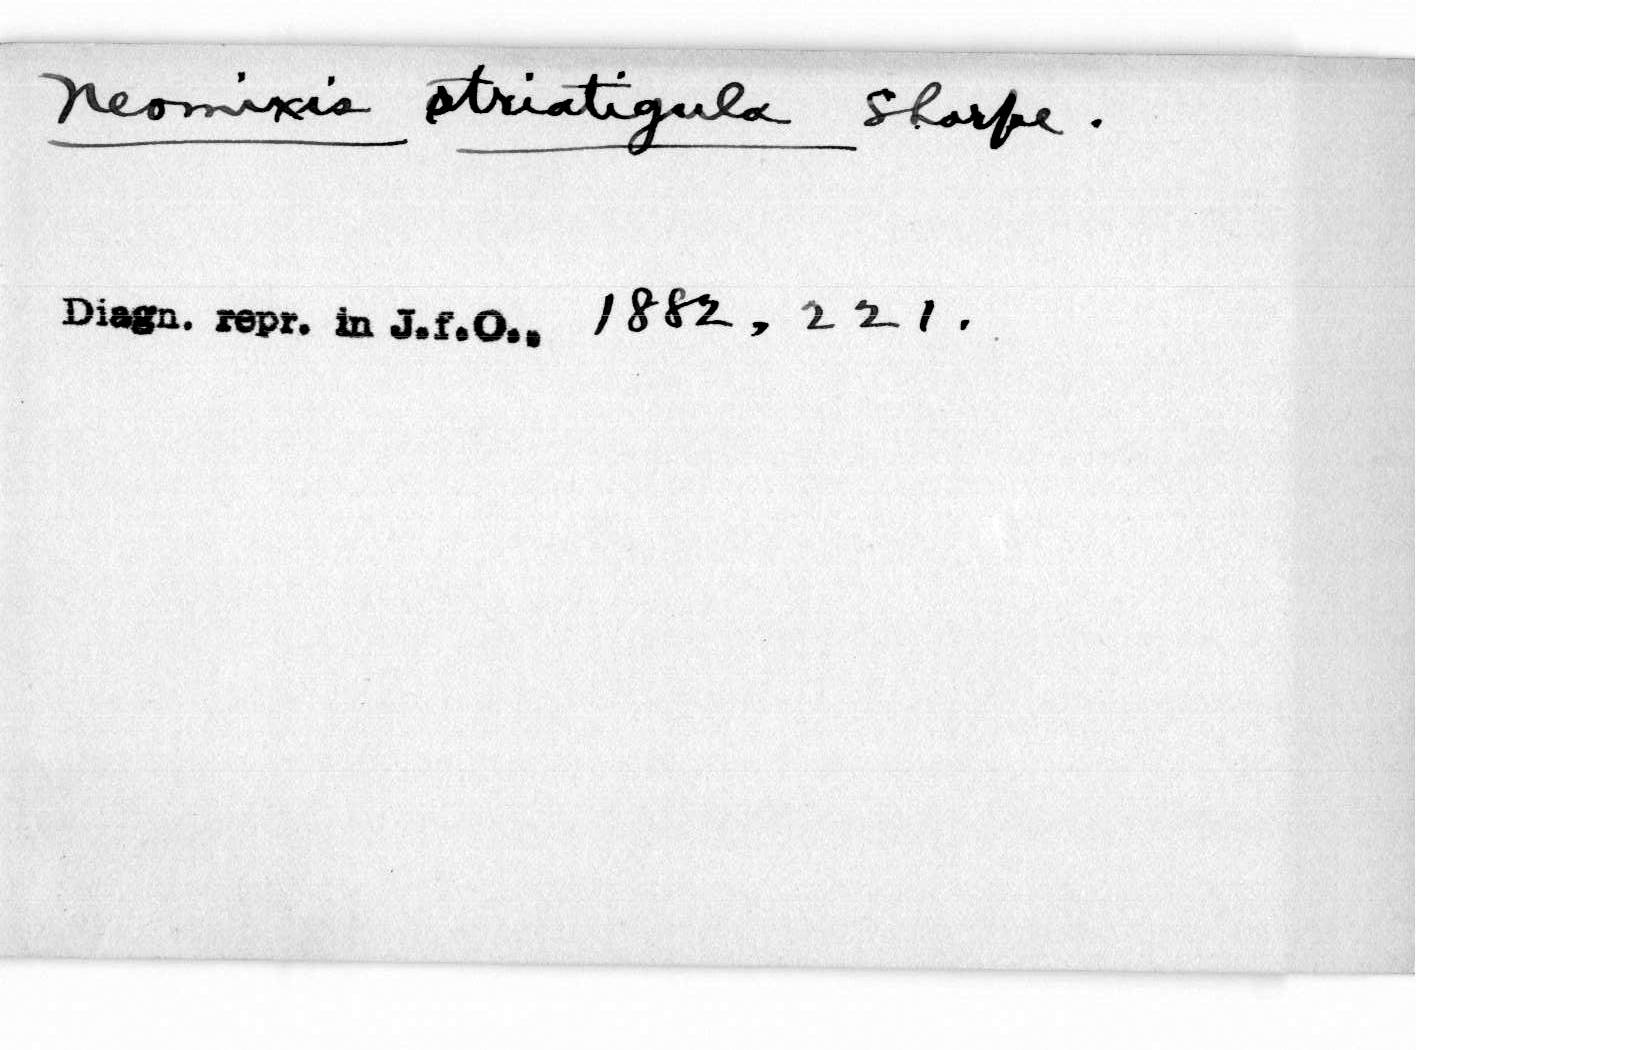 Neomixis striatigula Sharpe.
Diagn. repr. in J.f.O., 1882, 221.